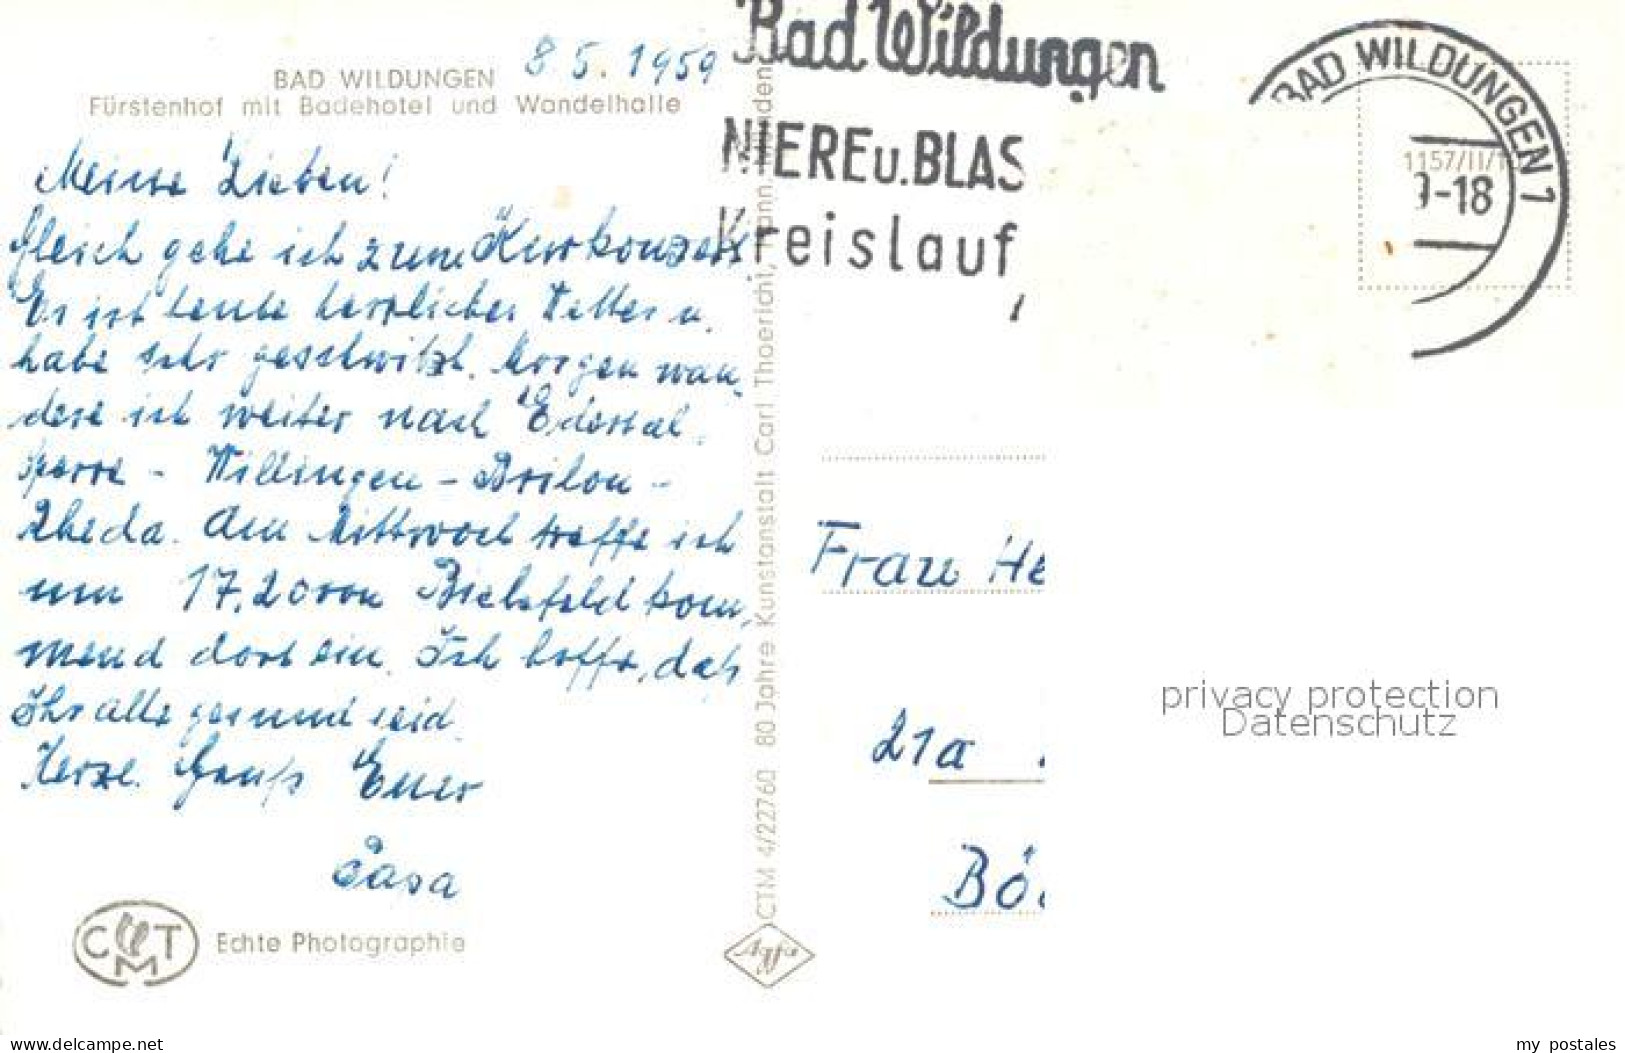 BAD WILDUNGEN
8.5.1959
Fürstenhof mit Badehotel und Wandelhalle
Meine Lieben!
Gleich gehe ich zum Kurkonzert
Es ist heute herrliches Wetter u.
habe sehr geschwitzt. Morgen wan-
dere ich weiter nach Edertal-
sperre - Willingen - Brilon -
Rheda. Am Mittwoch treffe ich
um 17.20 von Bielefeld kom-
mend dort ein. Ich hoffe, daß
Ihr alle gesund seid.
Herzl. Gruß Euer
CMT
Echte Photographie
CTM 4/22760 80 Jahre Kunstanstalt Carl Thoericht, Hann. Münden
Agfa
Bad Wildungen
NIERE u. BLAS
Kreislauf
BAD WILDUNGEN 1
-18
1157/II/1
Frau He
21a
Bö
privacy protection
Datenschutz
www.delcampe.net
my_postales